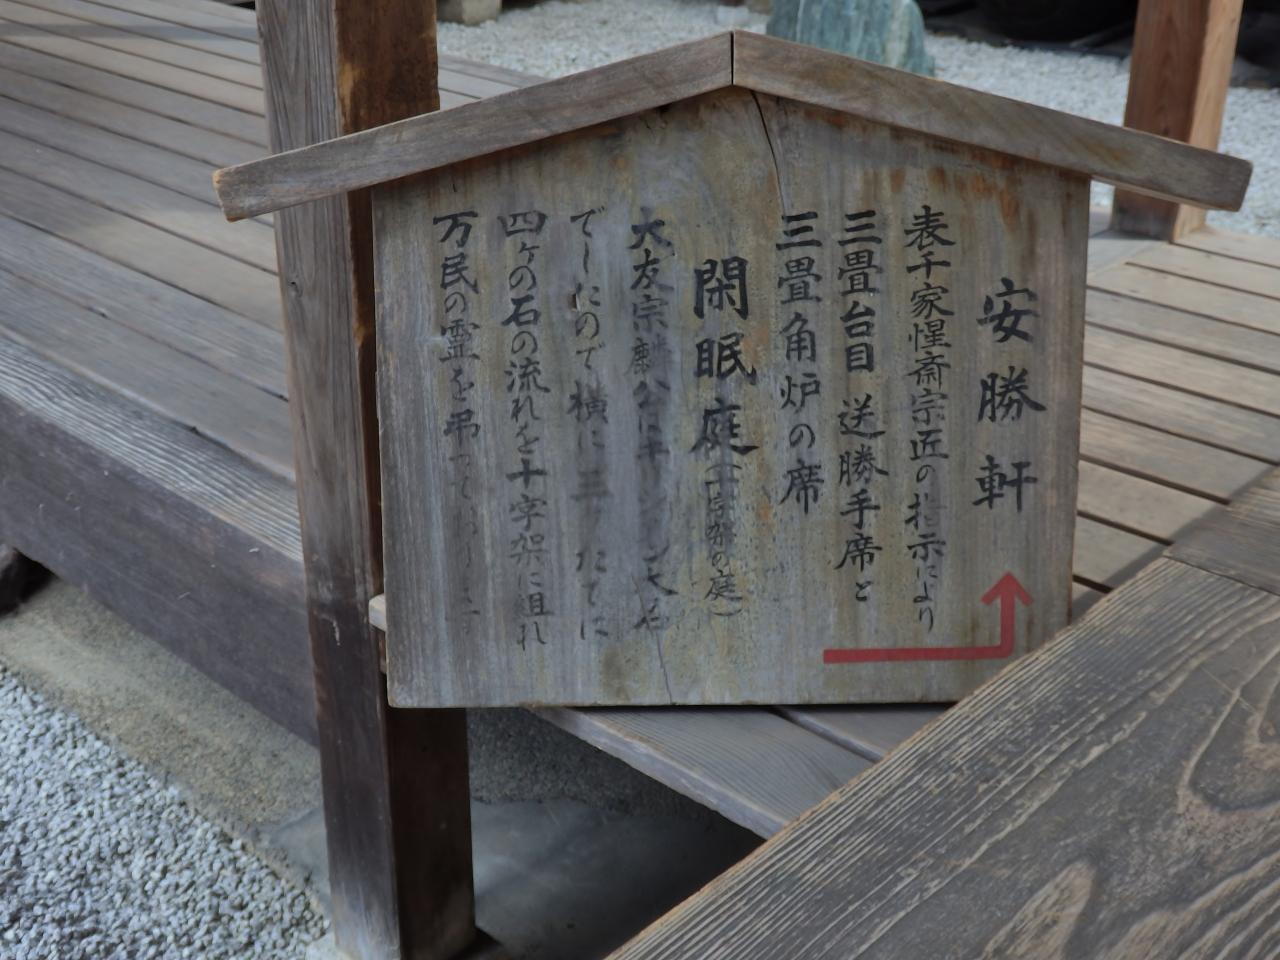 安勝軒
表千家惺斎宗匠の指示により
三畳台目 送勝手席と
三畳角炉の席
閑眠庭(十字架の庭)
大友宗麟公はキリシタン大名
でしたので横に三ツたてに
四ヶの石の流れを十字架に組れ
万民の霊を弔って